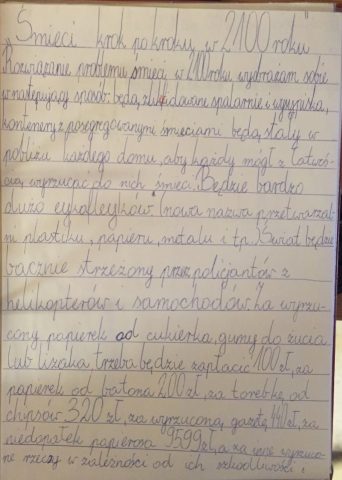 "Śmieci krok po kroku w 2100 roku"
Rozwiązanie problemu śmieci w 2100 roku wyobrażam sobie
w następujący sposób: będą zlikwidowane spalarnie i wysypiska,
kontenery z posegregowanymi śmieciami będą stały w
pobliżu każdego domu, aby każdy mógł z łatwo-
ścią wyrzucać do nich śmieci. Będzie bardzo
dużo (nowa nazwa przetwarzal-
ni plastiku, papieru, metalu i tp. Świat będzie
bacznie strzeżony przez policjantów z
helikopterów i samochodów. Za wyrzu-
cony papierek od cukierka, gumy do żucia
lub lizaka trzeba będzie zapłacić 100 zł, za
papierek od batona 200 zł, za torebkę od
chipsów 320 zł, za wyrzuconą gazetę 440 zł, za
niedopałek papierosa 9599 zł, a za inne wyrzuco-
ne rzeczy w zależności od ich szkodliwości i